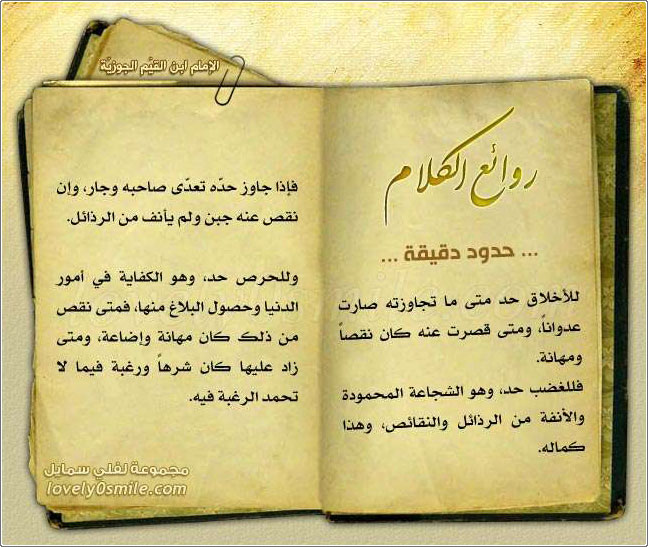 الإمام ابن القيّم الجوزيّة
روائع الكلام
... حدود دقيقة ...
للأخلاق حد متى ما تجاوزته صارت
عدواناً، ومتى قصرت عنه كان نقصاً
ومهانة.
فللغضب حد، وهو الشجاعة المحمودة
والأنفة من الرذائل والنقائص، وهذا
كماله.
فإذا جاوز حدّه تعدّى صاحبه وجار، وإن
نقص عنه جبن ولم يأنف من الرذائل.
وللحرص حد، وهو الكفاية في أمور
الدنيا وحصول البلاغ منها، فمتى نقص
من ذلك كان مهانة وإضاعة، ومتى
زاد عليها كان شرهاً ورغبة فيما لا
تحمد الرغبة فيه.
مجموعة لفلي سمايل
lovely0smile.com